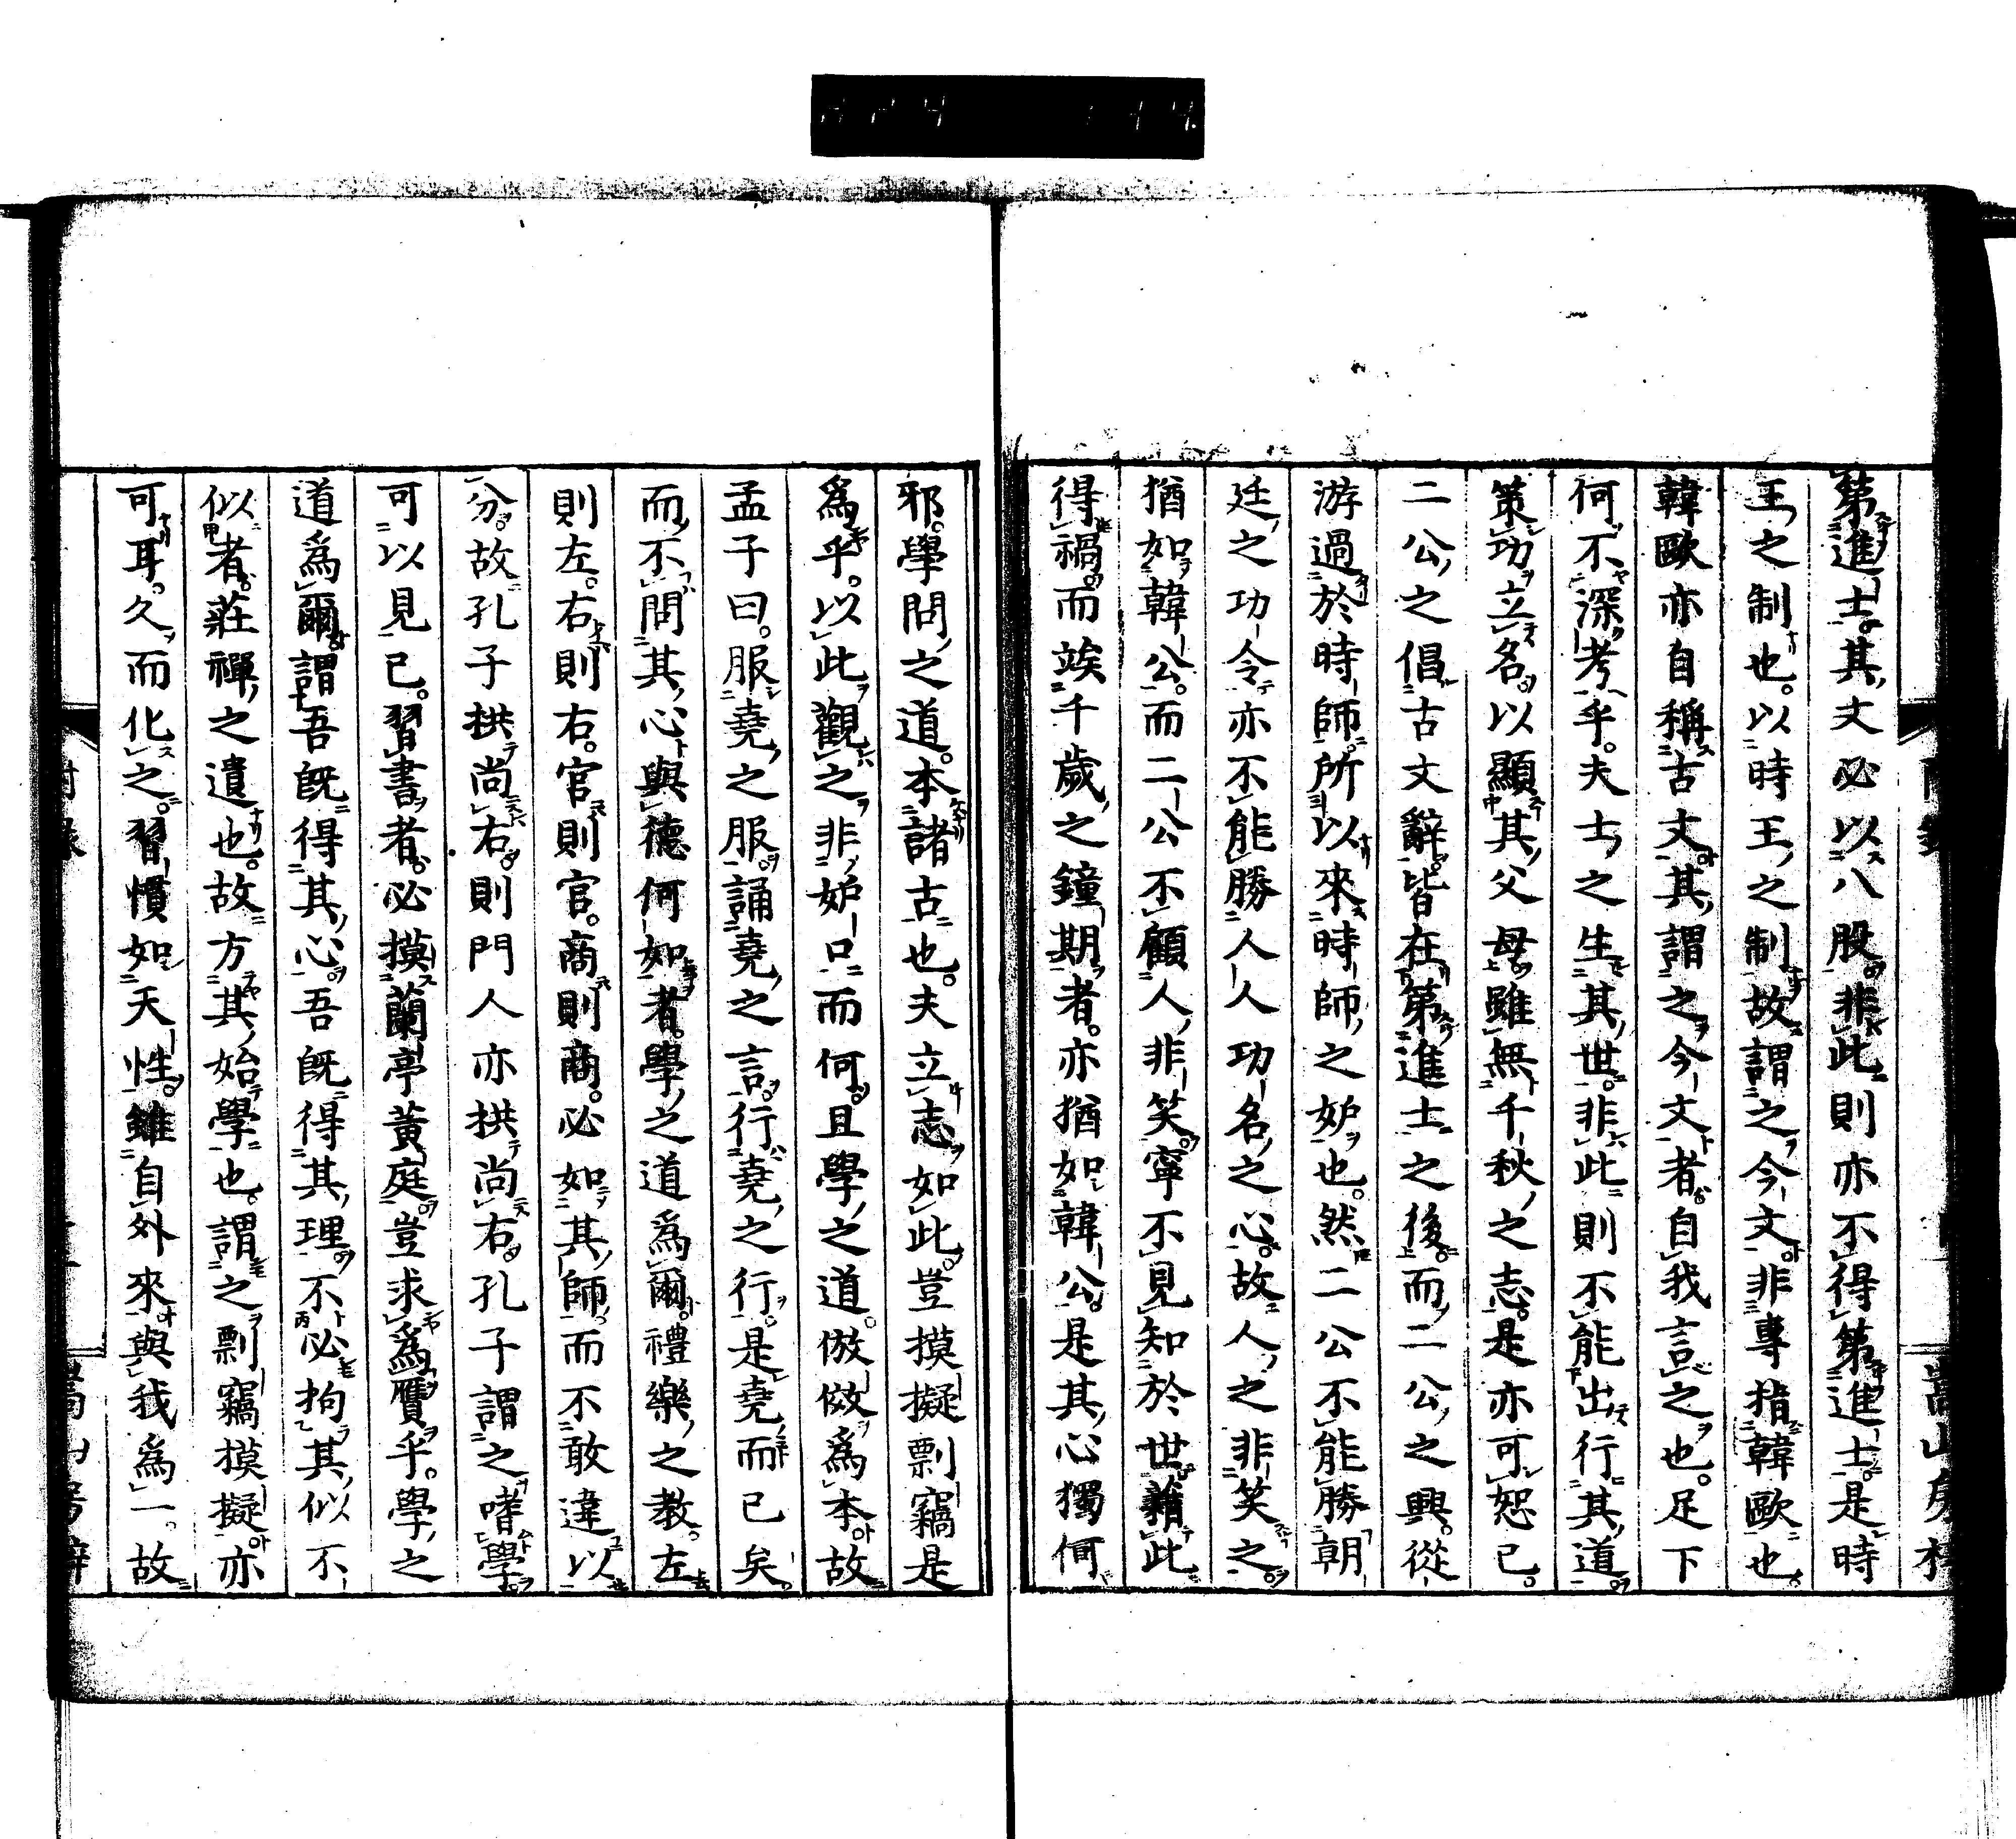 第進士。其文必以八股。非此則亦不得第進士。是時
王之制也。以時王之制。故謂之今文。非專指韓歐也。
韓歐亦自稱古文。其謂之今文者。自我言之也。足下
何不深考乎。夫士之生其世。非此則不能出行其道。
策功立名。以顯其父母。雖無千秋之志。是亦可恕已。
二公之倡古文辭。皆在第進士之後。而二公之興。從
游過於時師。所以來時師之妒也。然二公不能勝朝
廷之功令。亦不能勝人人功名之心。故人之非笑之。
猶如韓公。而二公不顧人非笑。寧不見知於世。藉此
得禍。而竢千歲之鐘期者。亦猶如韓公。是其心獨何
邪。學問之道。本諸古也。夫立志如此。豈摸擬剽竊是
爲乎。以此觀之。非妒口而何。且學之道。倣傚爲本。故
孟子曰。服堯之服。誦堯之言。行堯之行。是堯而已矣。
而不問其心與德何如者。學之道爲爾。禮樂之教。左
則左。右則右。宮則宮。商則商。必如其師。而不敢違以
分。故孔子拱尚右。則門人亦拱尚右。孔子謂之嗜學。
可以見已。習書者。必摸蘭亭黃庭。豈求爲贋乎。學之
道爲爾。謂吾既得其心。吾既得其理。不必拘其似不
似者。莊禪之遺也。故方其始學也。謂之剽竊摸擬亦
可耳。久而化之。習慣如天性。雖自外來。與我爲一。故